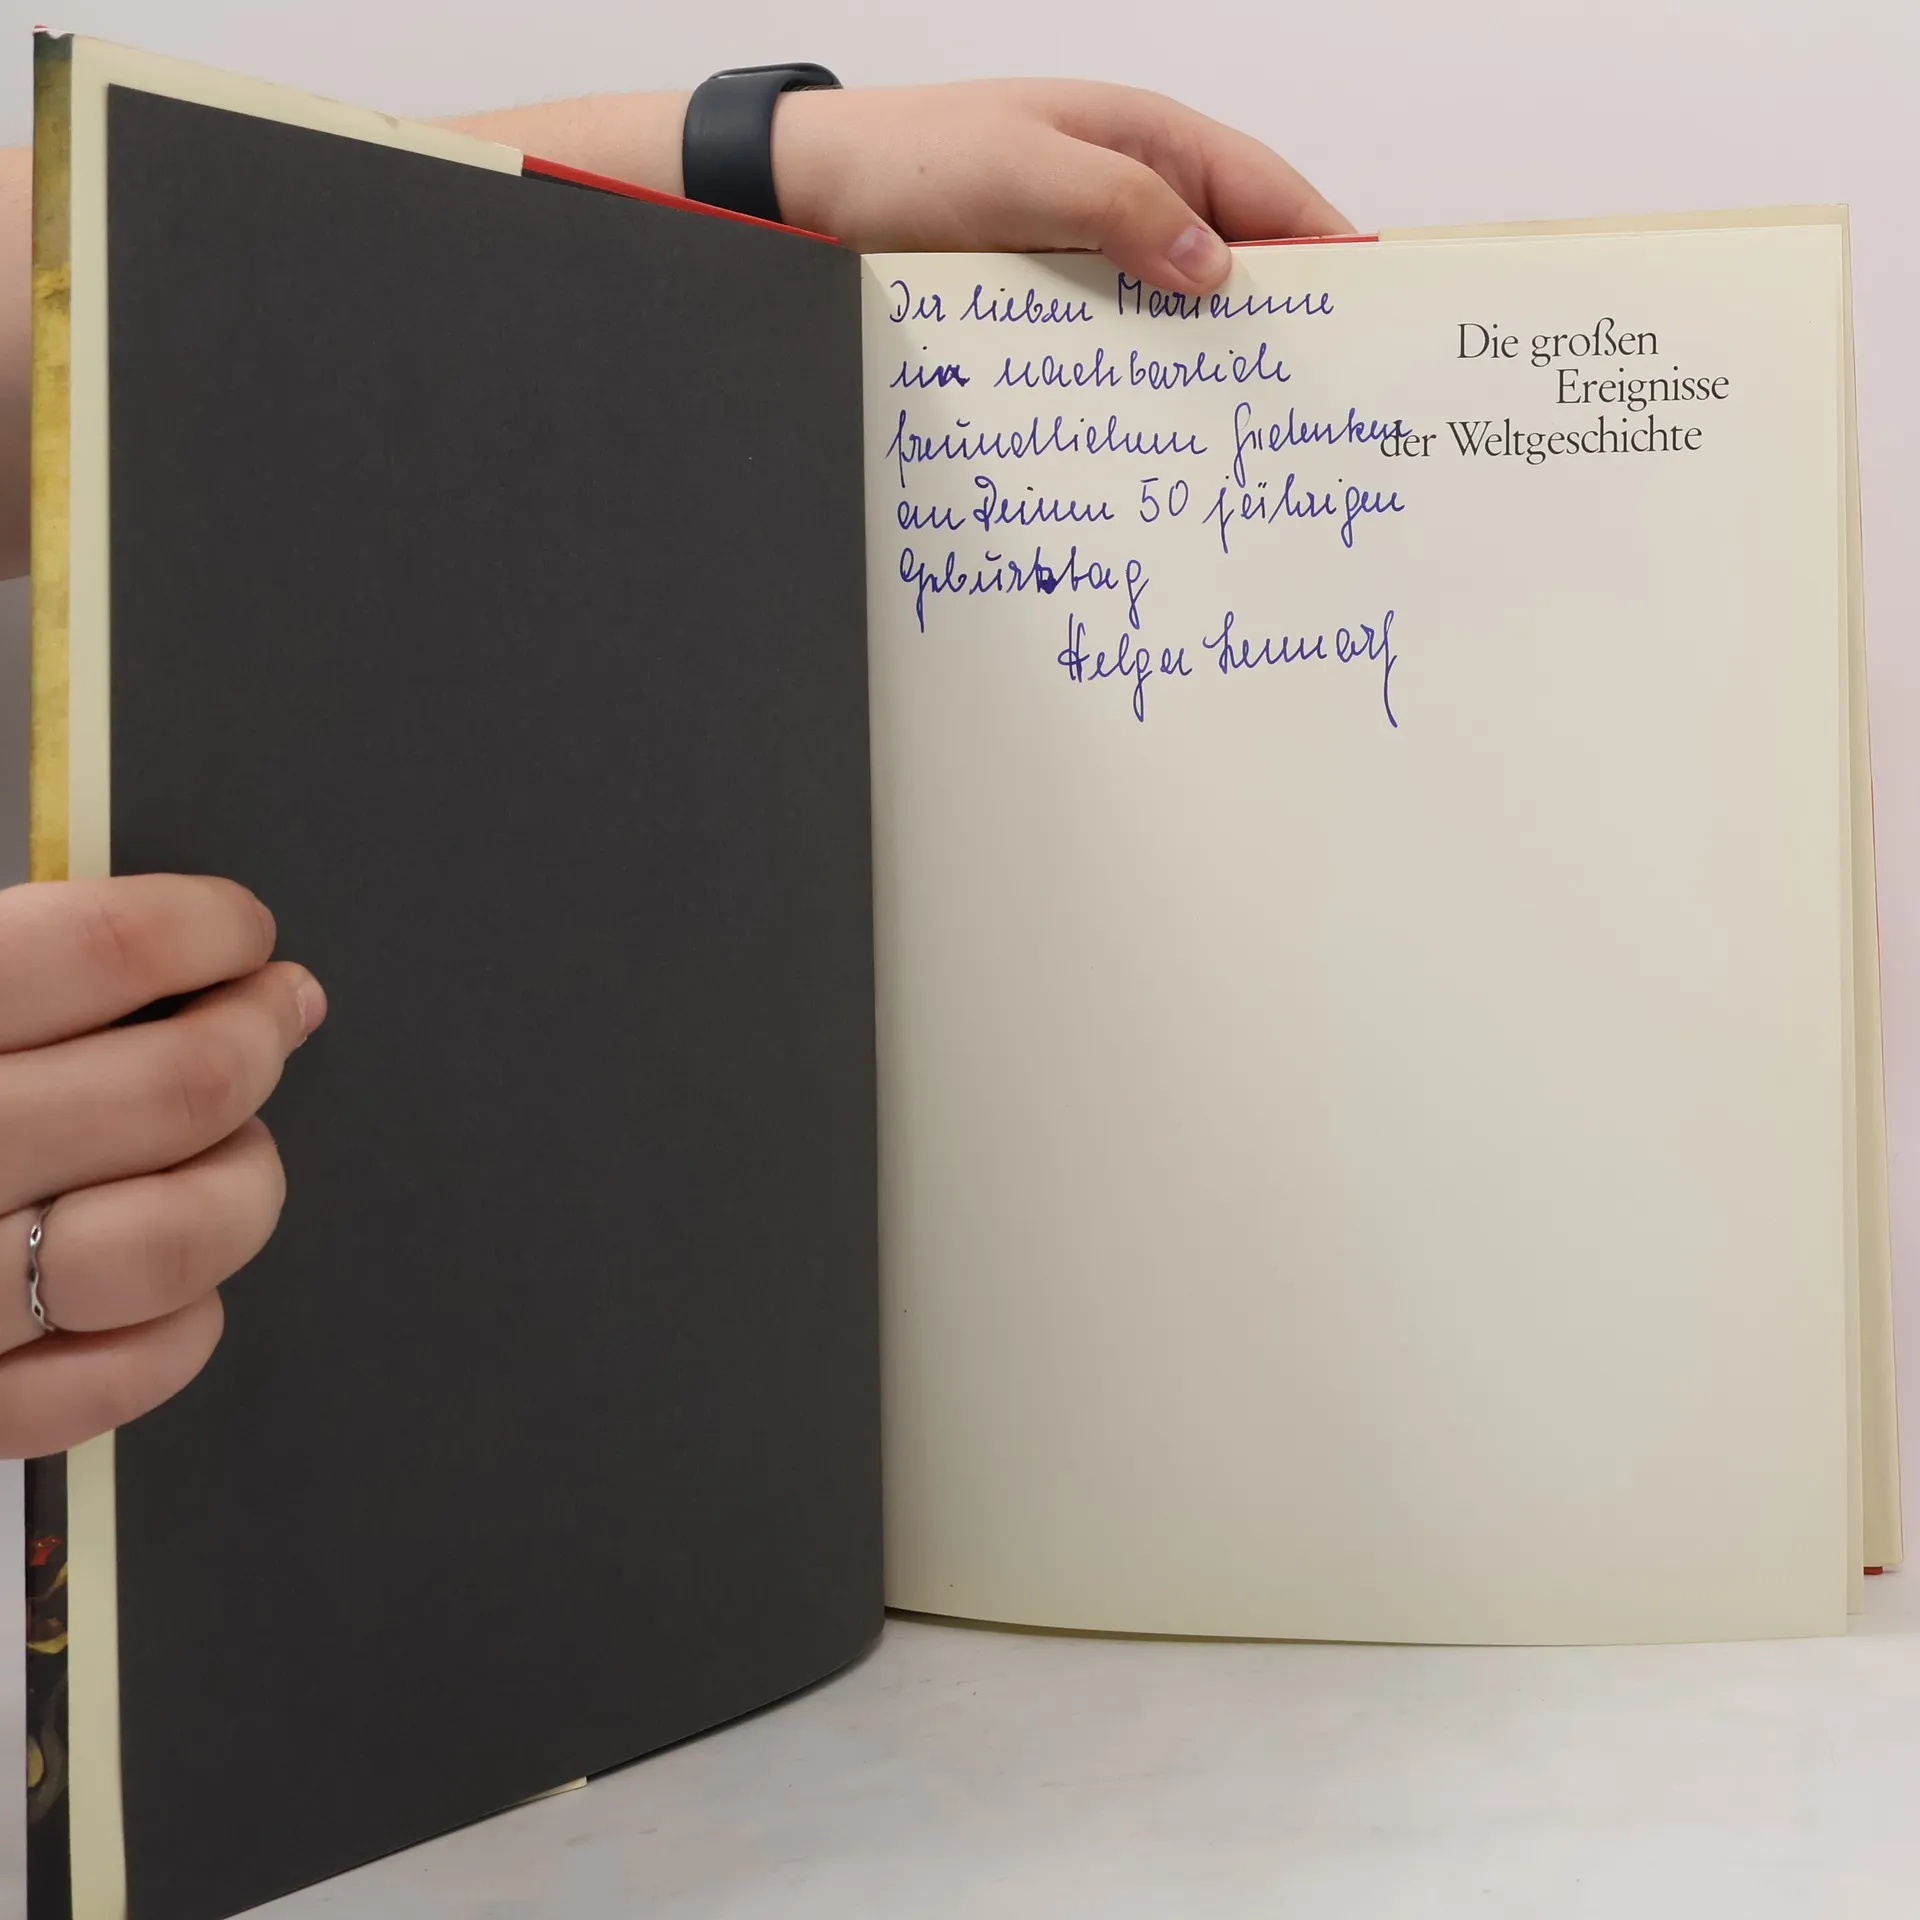 Der lieben Marianne
in nachbarlich
freundlichem Gedenken
an Deinen 50 jährigen
Geburtstag
Helga
Die großen
Ereignisse
der Weltgeschichte